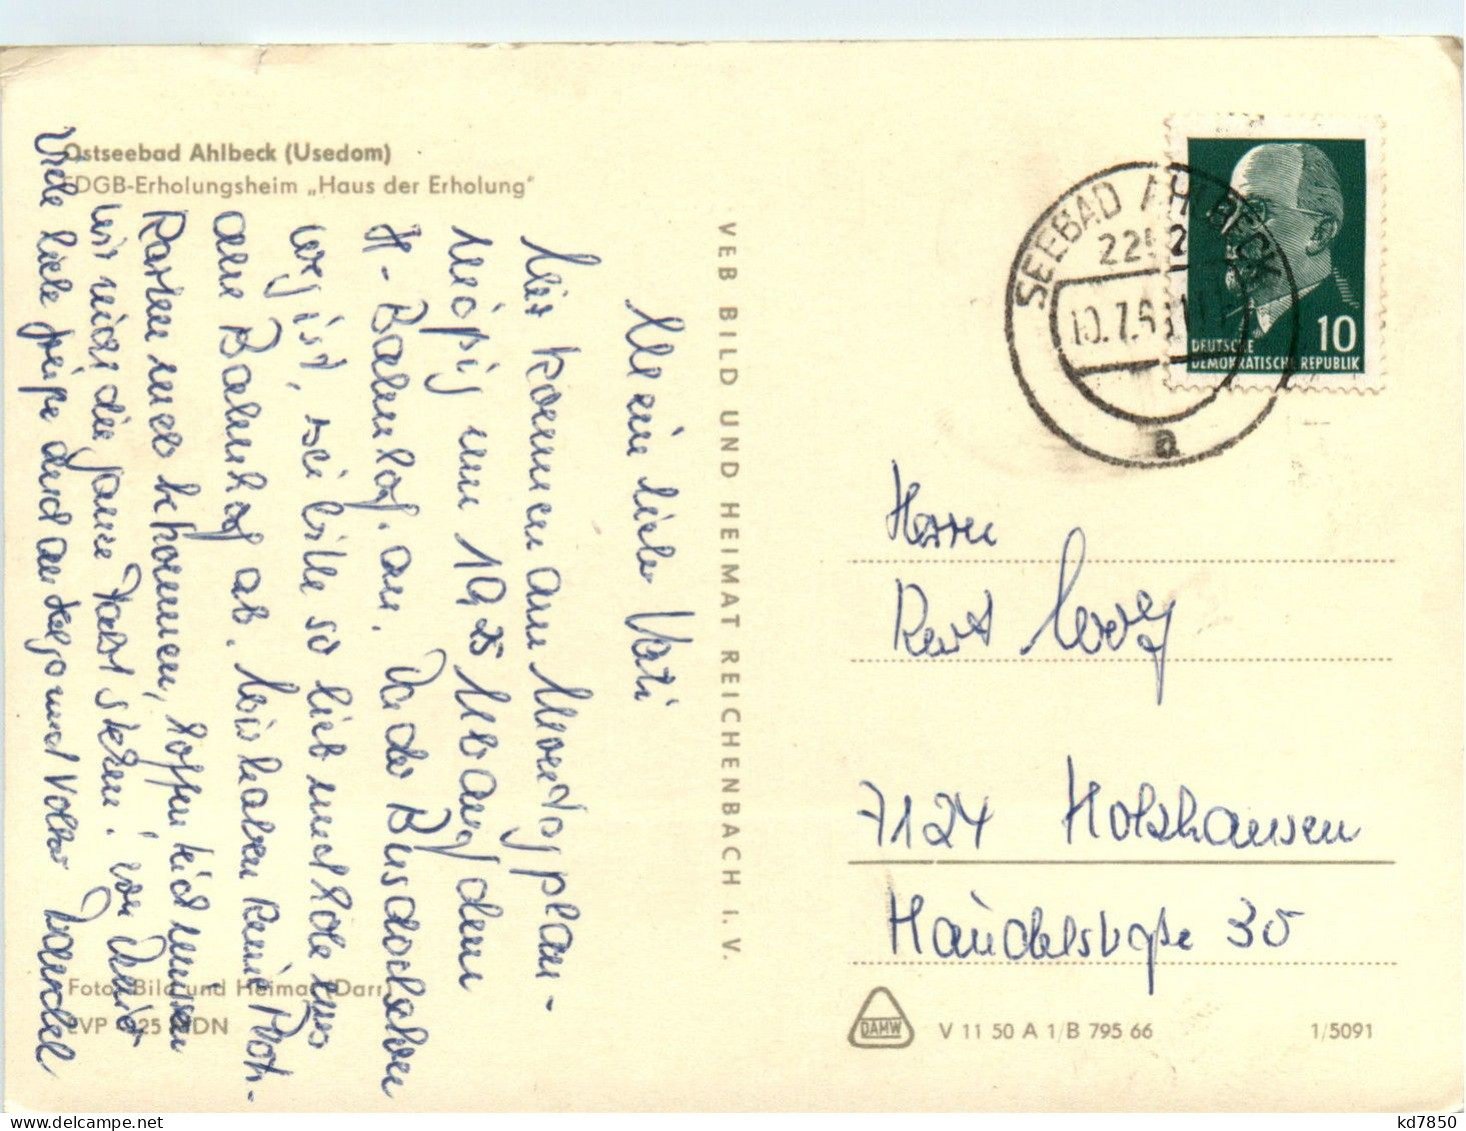 Ostseebad Ahlbeck (Usedom)
FDGB-Erholungsheim „Haus der Erholung"
Meine liebe Vati
Wir kommen am Montag plan-
mäßig um 19,25 Uhr auf dem
H-Bahnhof an. Da der Bus doch schon
weg ist, sei bitte so lieb und hole uns
am Bahnhof ab. Wir haben keine Platz-
karten mehr bekommen, hoffentlich müssen
wir nicht die ganze Fahrt stehen.
Viele liebe Grüße und
und Volker
VEB BILD UND HEIMAT REICHENBACH I. V.
Foto: Bild und Heimat (Darr)
EVP 0,25 MDN
SEEBAD AHLBECK
2252
10.7.6
a
10
DEUTSCHE
DEMOKRATISCHE REPUBLIK
Herrn
Kurt
7124 Holzhausen
Händelstraße 35
DAMW
V 11 50 A 1/B 795 66
1/5091
kd7850